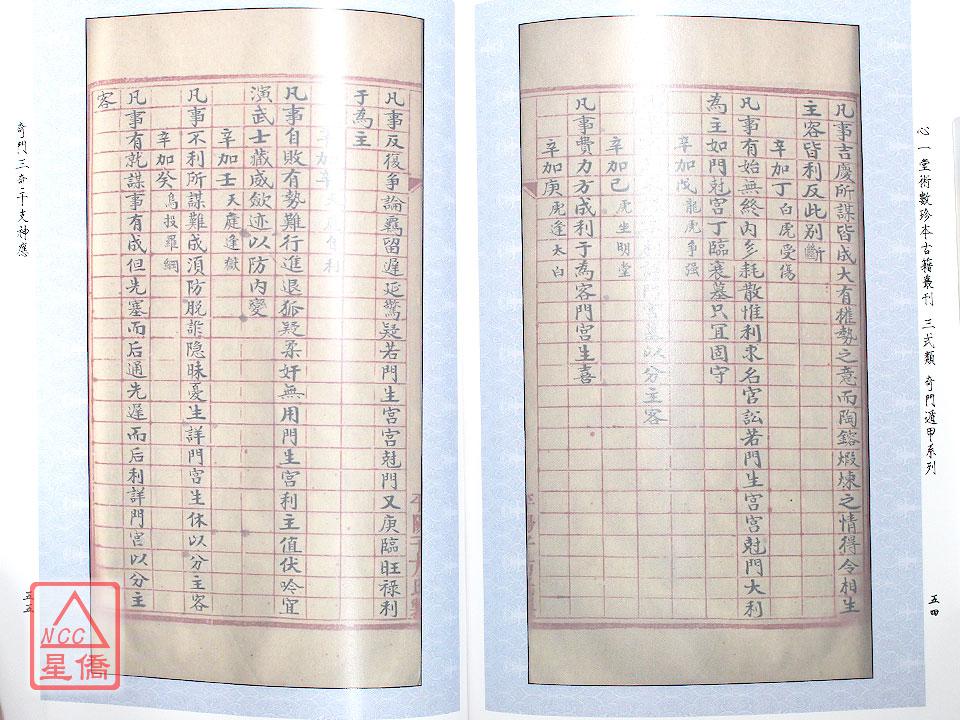 心一堂術數珍本古籍叢刊 三式類 奇門遁甲系列
五四
凡事吉慶所謀皆成大有權勢之意而陶鎔煅煉之情得令相生
主客皆利反此別斷
辛加丁 白虎受傷
凡事有始無終內多耗散惟利求名官訟若門生宮宮尅門大利
為主如門尅宮丁臨衰墓只宜固守
辛加戊 龍虎争强
以分主客
辛加己 虎坐明堂
凡事費力方成利于為客門宮生喜
辛加庚 虎逢太白
凡事反復争論羁留遲延驚疑若門生宮宮尅門又庚臨旺祿利
于為主
辛加辛
凡事自敗有勢難行進退狐疑柔奸無用門生宮利主值伏吟宜
演武士藏威歛迹以防內變
辛加壬 天庭逢獄
凡事不利所謀難成須防脱詐隐昧憂生詳門宮生休以分主客
辛加癸 烏投羅網
凡事有乾謀事有成但先塞而后通先遲而后利詳門宮以分主
客
奇門三奇干支神應
五五
NCC
星僑